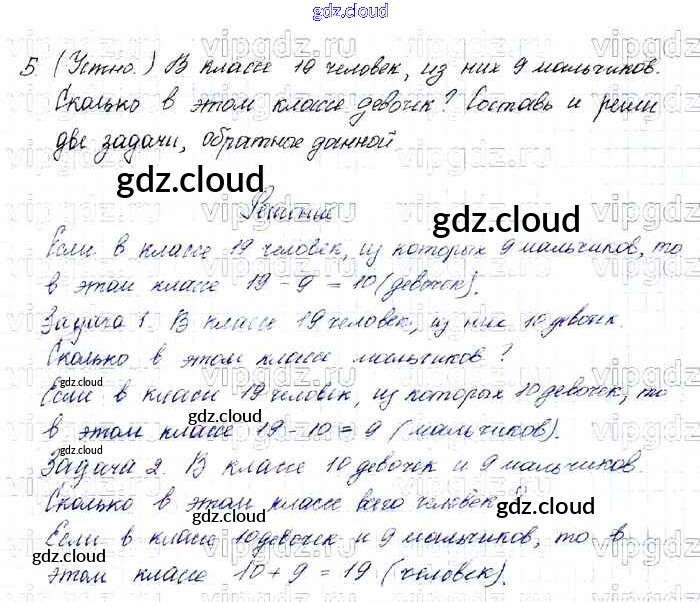 gdz.cloud
5. (Устно.) В классе 19 человек, из них 9 мальчиков.
Сколько в этом классе девочек? Составь и реши
две задачи, обратные данной
gdz.cloud
Решение
gdz.cloud
Если в классе 19 человек, из которых 9 мальчиков, то
в этом классе 19 - 9 = 10 (девочек).
Задача 1. В классе 19 человек, из них 10 девочек.
Сколько в этом классе мальчиков?
gdz.cloud
Если в классе 19 человек, из которых 10 девочек, то
gdz.cloud
в этом классе 19 - 10 = 9 (мальчиков).
gdz.cloud
Задача 2. В классе 10 девочек и 9 мальчиков.
Сколько в этом классе всего человек?
gdz.cloud
gdz.cloud
Если в классе 10 девочек и 9 мальчиков, то в
gdz.cloud
gdz.cloud
этом классе 10 + 9 = 19 (человек).